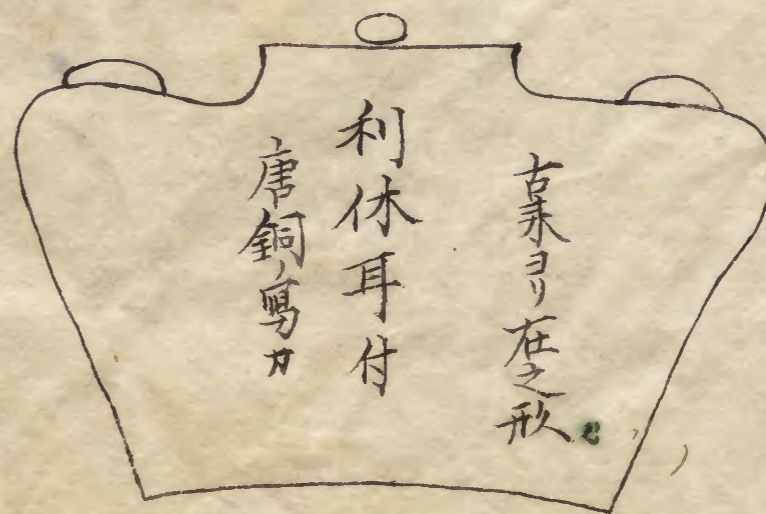 古来ヨリ在之形
利休耳付
唐銅ノ写カ